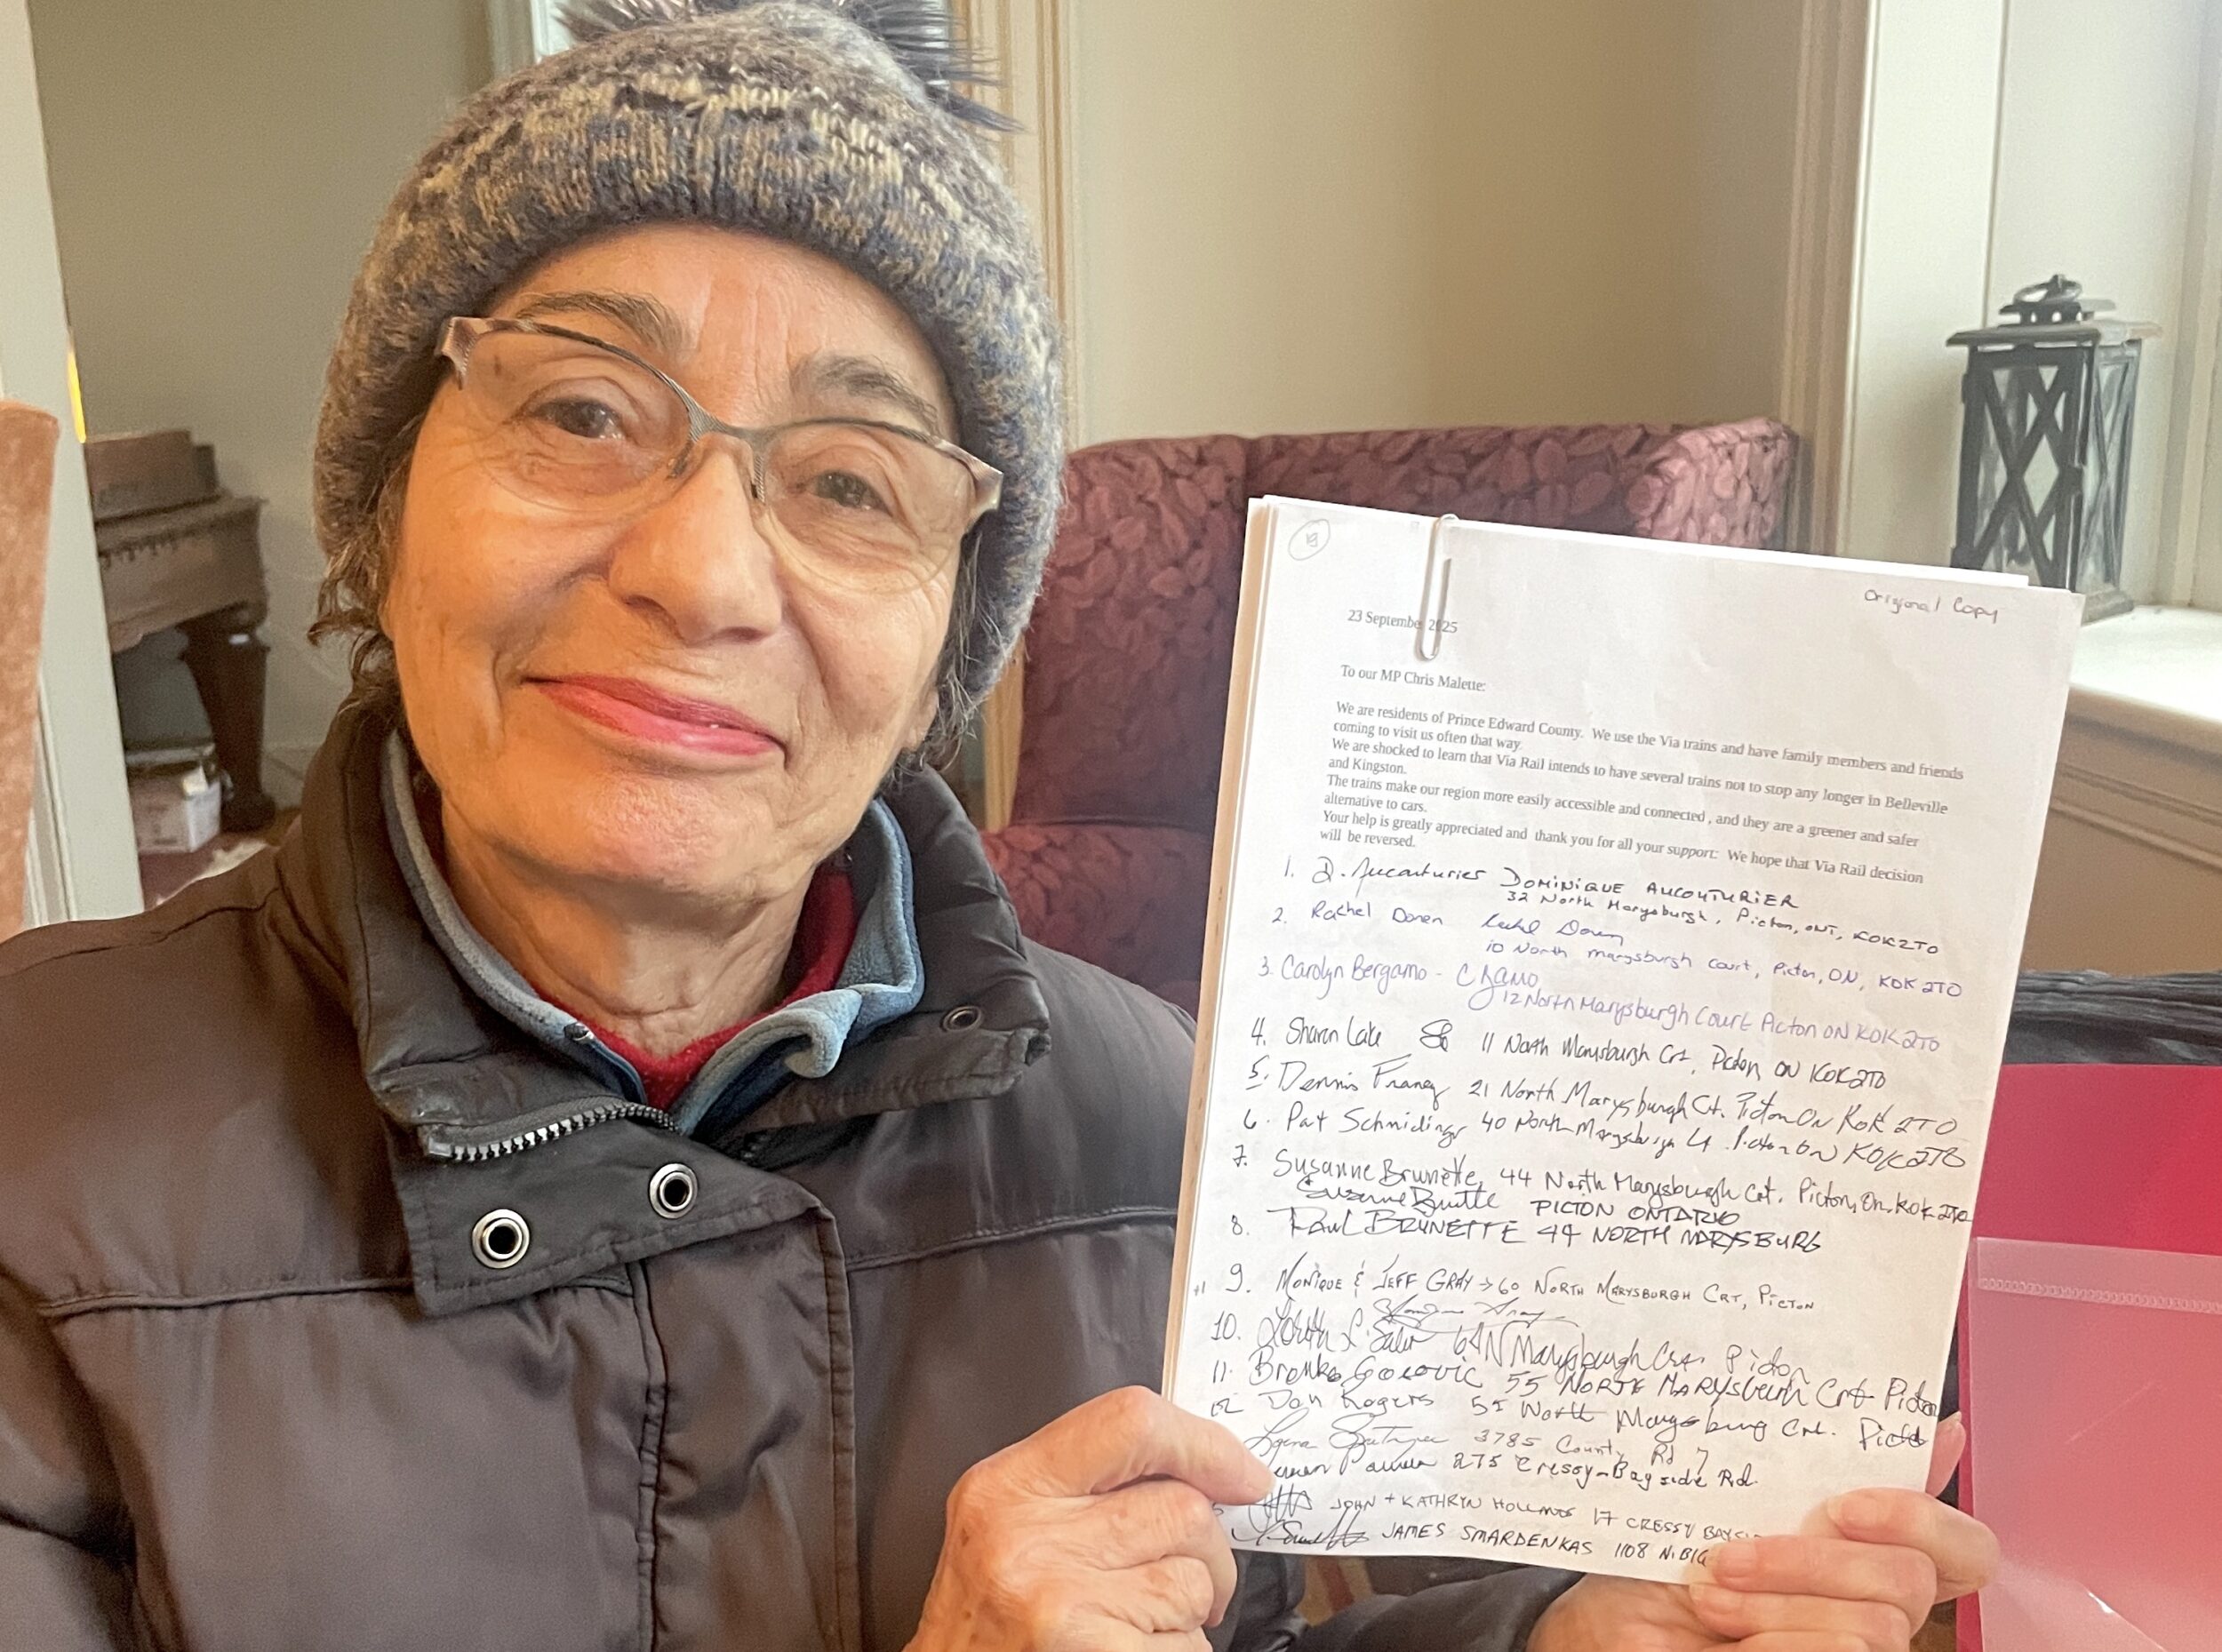 19
Original Copy
23 September 2025
To our MP Chris Malette:
We are residents of Prince Edward County. We use the Via trains and have family members and friends
coming to visit us often that way.
We are shocked to learn that Via Rail intends to have several trains not to stop any longer in Belleville
and Kingston.
The trains make our region more easily accessible and connected , and they are a greener and safer
alternative to cars.
Your help is greatly appreciated and thank you for all your support: We hope that Via Rail decision
will be reversed.
1. D. Aucouturier DOMINIQUE AUCOUTURIER
32 North Marysburgh, Picton, ONT, K0K2T0
2. Rachel Doren
10 North marysburgh court, Picton, ON, K0K 2T0
3. Carolyn Bergamo -
12 North Marysburgh Court Picton ON K0K 2T0
4. Sharon Lake 11 North Marysburgh Crt, Picton, ON K0K2T0
5. Dennis Franey 21 North Marysburgh Ct. Picton On K0K 2T0
6. Pat Schmidinger 40 North Marysburgh Ct Picton ON K0K2T0
7. Susanne Brunette, 44 North Marysburgh Crt. Picton, On, K0K 2T0
Susanne Brunette PICTON ONTARIO
8. PAUL BRUNETTE 44 NORTH MARYSBURG
+1 9. MONIQUE & JEFF GRAY → 60 NORTH MARYSBURGH CRT, PICTON
10. 64 N Marysburgh Crt. Picton
11. Branko 55 NORTH MARYSBURGH Crt Picton
12 Don Rogers 51 North Marysburg Crt. Picton
3785 County Rd 7
275 Cressy-Bayside Rd.
JOHN + KATHRYN 17 CRESSY BAYSI
JAMES SMARDENKAS 1108 N. BIG